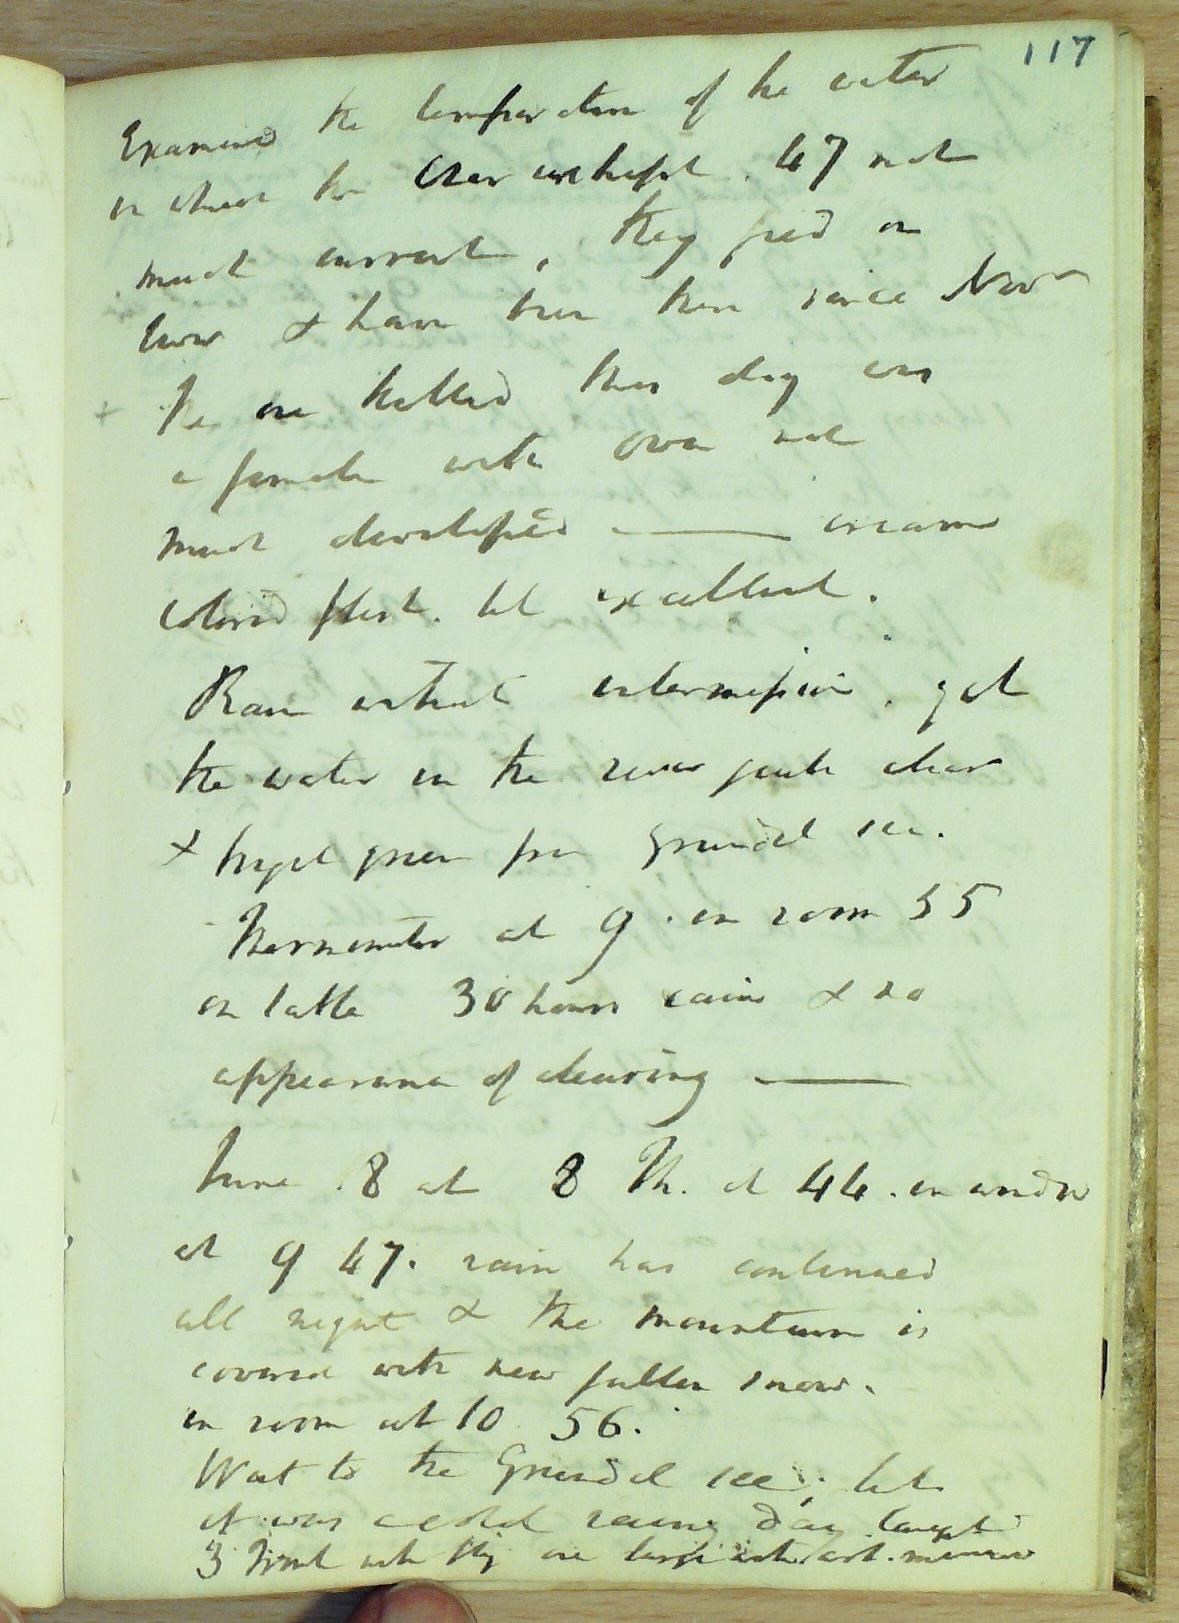 117
Examined the temperature of the water
in which the Char are kept. 47 not
much current, they feed on
liver & have been there since Novr
+ The one killed this day was
a female with ova not
much developed —— cream
colored flesh. but excellent.
Rain without intermission. yet
the water in the river quite clear
& bright green from Grundel see.
Thermometer at 9. in room 55
on table 30 hours rain & no
appearance of clearing ——
June 8 at 8 Th. at 44. in window
at 9 47. rain has continued
all night & the mountain is
covered with new fallen snow.
in room at 10 56.
Went to the Grundel see; but
it was a cold rainy day. caught
3 Trout with fly one large with art. minnow